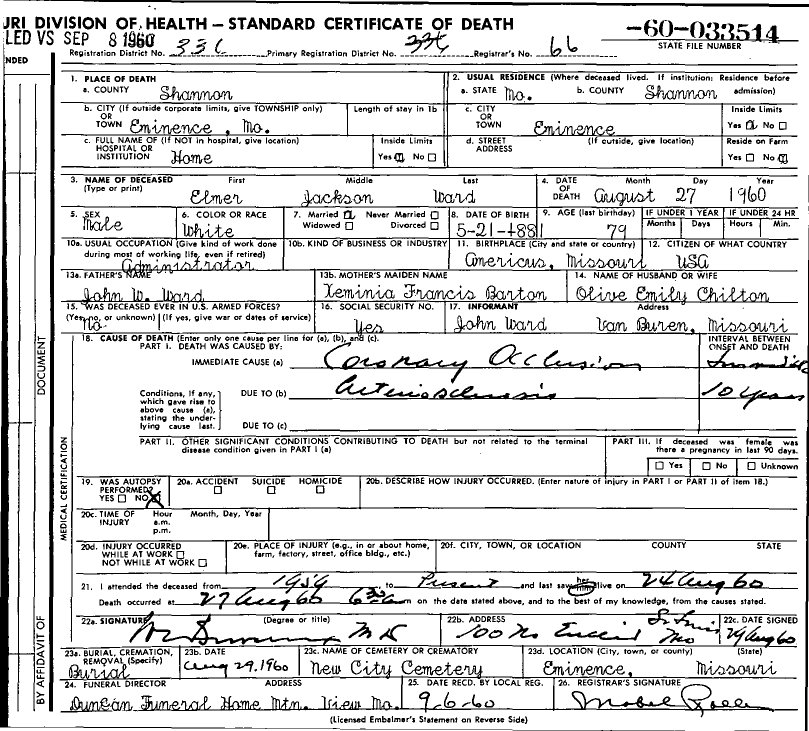 URI DIVISION OF HEALTH — STANDARD CERTIFICATE OF DEATH
LED VS SEP 8 1960
-60-033514
STATE FILE NUMBER
Registration District No. 336 Primary Registration District No. 336 Registrar's No. 66
NDED
1. PLACE OF DEATH
a. COUNTY Shannon
2. USUAL RESIDENCE (Where deceased lived. If institution: Residence before admission)
a. STATE Mo. b. COUNTY Shannon
b. CITY (If outside corporate limits, give TOWNSHIP only) OR TOWN Eminence, Mo.
Length of stay in 1b
c. CITY OR TOWN Eminence
Inside Limits
Yes No
c. FULL NAME OF (If NOT in hospital, give location) HOSPITAL OR INSTITUTION Home
Inside Limits
Yes No
d. STREET ADDRESS (If outside, give location)
Reside on Farm
Yes No
3. NAME OF DECEASED (Type or print)
First Middle Last
Elmer Jackson Ward
4. DATE OF DEATH
Month Day Year
August 27 1960
5. SEX
Male
6. COLOR OR RACE
White
7. Married Never Married
Widowed Divorced
8. DATE OF BIRTH
5-21-1881
9. AGE (last birthday)
79
IF UNDER 1 YEAR
Months Days
IF UNDER 24 HR
Hours Min.
10a. USUAL OCCUPATION (Give kind of work done during most of working life, even if retired)
Administrator
10b. KIND OF BUSINESS OR INDUSTRY
11. BIRTHPLACE (City and state or country)
Americus, Missouri
12. CITIZEN OF WHAT COUNTRY
USA
13a. FATHER'S NAME
John W. Ward
13b. MOTHER'S MAIDEN NAME
Xeminia Francis Barton
14. NAME OF HUSBAND OR WIFE
Olive Emily Chilton
15. WAS DECEASED EVER IN U.S. ARMED FORCES?
(Yes, no, or unknown) (If yes, give war or dates of service)
No
16. SOCIAL SECURITY NO.
Yes
17. INFORMANT Address
John Ward Van Buren, Missouri
18. CAUSE OF DEATH (Enter only one cause per line for (a), (b), and (c).
PART I. DEATH WAS CAUSED BY:
INTERVAL BETWEEN ONSET AND DEATH
IMMEDIATE CAUSE (a) Coronary Occlusion
Conditions, if any, which gave rise to above cause (a), stating the underlying cause last.
DUE TO (b) Arteriosclerosis 10 years
DUE TO (c)
PART II. OTHER SIGNIFICANT CONDITIONS CONTRIBUTING TO DEATH but not related to the terminal disease condition given in PART I (a)
PART III. If deceased was female was there a pregnancy in last 90 days.
Yes No Unknown
19. WAS AUTOPSY PERFORMED?
YES NO
20a. ACCIDENT SUICIDE HOMICIDE
20b. DESCRIBE HOW INJURY OCCURRED. (Enter nature of injury in PART I or PART II of item 18.)
20c. TIME OF INJURY
Hour a.m. p.m. Month, Day, Year
20d. INJURY OCCURRED
WHILE AT WORK
NOT WHILE AT WORK
20e. PLACE OF INJURY (e.g., in or about home, farm, factory, street, office bldg., etc.)
20f. CITY, TOWN, OR LOCATION COUNTY STATE
21. I attended the deceased from 1959 to Present and last saw her him alive on 24 Aug 60
Death occurred at 27 Aug 60 m on the date stated above, and to the best of my knowledge, from the causes stated.
22a. SIGNATURE (Degree or title)
MD
22b. ADDRESS
100 No Euclid St Louis Mo
22c. DATE SIGNED
29 Aug 60
23a. BURIAL, CREMATION, REMOVAL (Specify)
Burial
23b. DATE
Aug 29, 1960
23c. NAME OF CEMETERY OR CREMATORY
New City Cemetery
23d. LOCATION (City, town, or county) (State)
Eminence, Missouri
24. FUNERAL DIRECTOR ADDRESS
Duncan Funeral Home Mtn. View Mo.
25. DATE RECD. BY LOCAL REG.
9-6-60
26. REGISTRAR'S SIGNATURE
Mabel
(Licensed Embalmer's Statement on Reverse Side)
DOCUMENT
MEDICAL CERTIFICATION
BY AFFIDAVIT OF